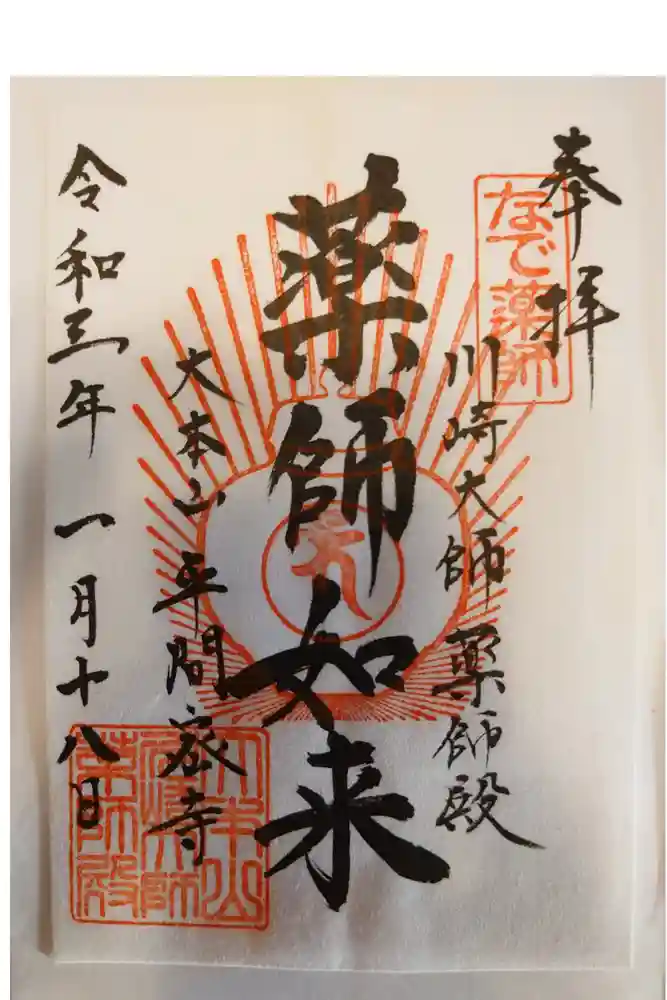 奉拝
なで薬師
川崎大師薬師殿
薬師如来
大本山平間寺
令和三年一月十八日
大本山
川崎大師
薬師殿